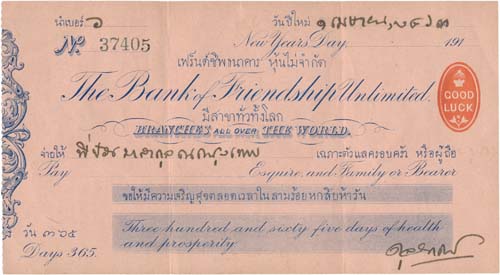 นำเบอร์ ๖
วันปีใหม่ ๑ เมษายน, ๒๔๖๓
Nº 37405
New Years Day 191
เฟร็นด์ชิพธนาคาร หุ้นไม่จำกัด
The Bank of Friendship Unlimited.
GOOD LUCK
มีสาขาทั่วทั้งโลก
BRANCHES ALL OVER THE WORLD.
จ่ายให้
เฉภาะตัวแลครอบครัว หรือผู้ถือ
Pay
Esquire and Family or Bearer
ขอให้มีความเจริญศุขตลอดเวลาในสามร้อยหกสิบห้าวัน
วัน ๓๖๕
Three hundred and sixty five days of health
Days 365.
and prosperity.